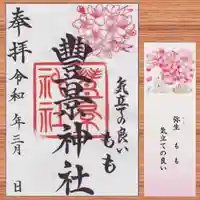 奉拝
令和 年三月 日
豐景神社
気立ての良い
もも
弥生 もも
気立ての良い